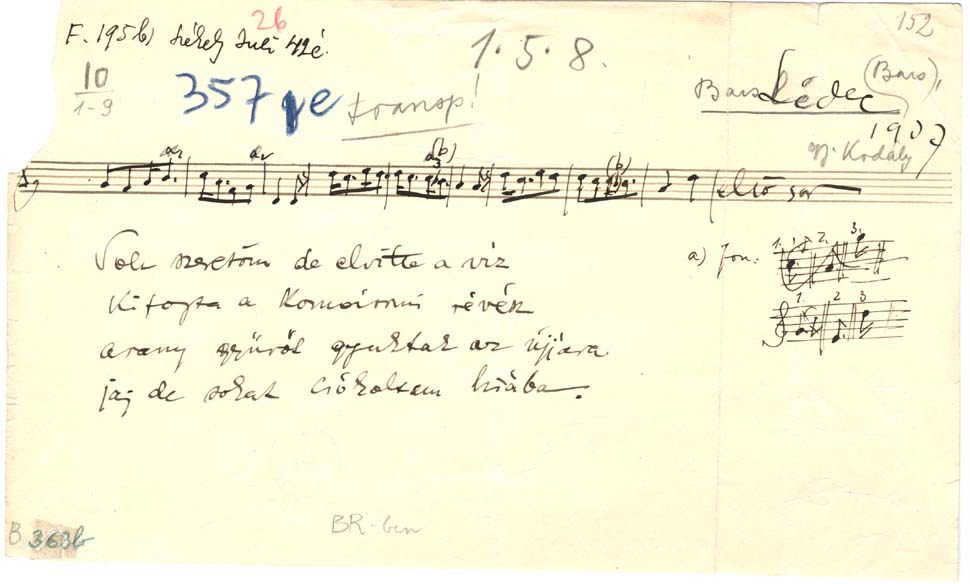 26
152
F. 195b) Székely Juli 42 é.
1. 5. 8.
10
1-9
357
transp!
Bars Lédec (Bars),
1907
gy. Kodály
(b)
(b)
első sor
Volt szeretőm de elvitte a víz
Kifogta a Komáromi révész
arany gyűrőt gyuktak az újjára
jaj de sokat csókoltam hiába.
a) fon:
1. 2. 3.
1. 2 3
BR-ben
B 363b